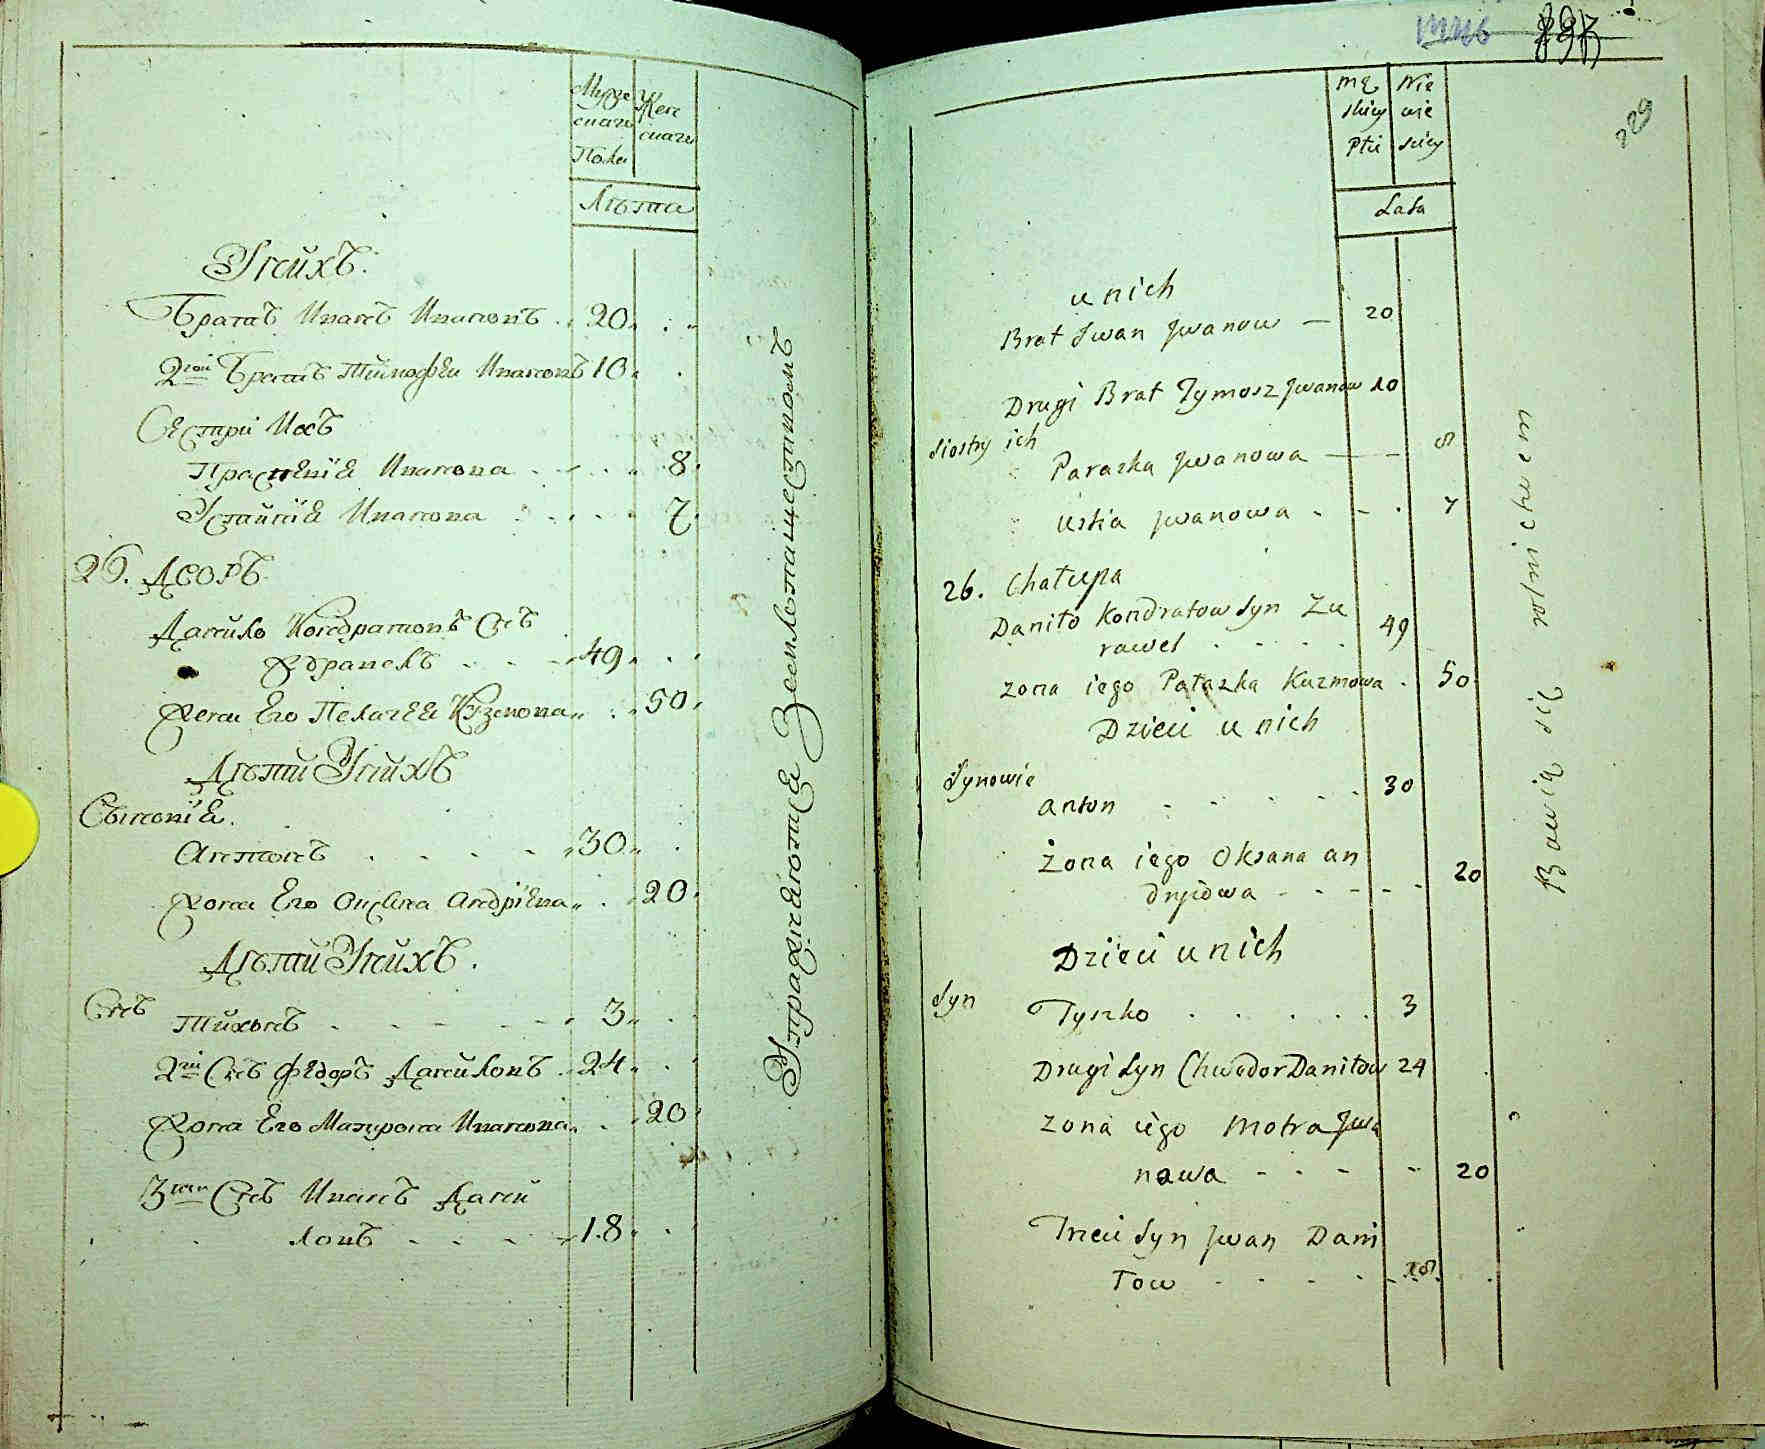 Мужескагѡ
Пола
Женскагѡ
Лѣта
У нихъ.
Братъ Иванъ Ивановъ 20
2гой Братъ Тимофеи Ивановъ 10
Сестри Ихъ
Прасковія Иванова 8
Устинія Иванова 7
26. Дворъ
Данило Кондратовъ Снъ
Журавель 49
Жена Его Пелагея Кузмова 50
Дѣти У нихъ
Сыновія.
Антонъ 30
Жона Его Оксена Андріева 20
Дѣти У нихъ.
Снъ
Тихонъ 3
2гій Снъ Федоръ Даниловъ 24
Жона Его Матрона Иванова 20
3тий Снъ Иванъ Дани
ловъ 18
Упражняются Земледелчествомъ
229
mę
skiey
Płci
Nie
wie
sciey
Lata
u nich
Brat Jwan Jwanow 20
Drugi Brat Tymosz Jwanow 10
Siostry ich
Paraska Jwanowa 8
Ustia Jwanowa 7
26. Chałupa
Daniło Kondratow Syn Zu
rawel 49
zona iego Pałazka Kuzmowa 50
Dzieci u nich
Synowie
Anton 30
Żona iego Oksana An
dryiowa 20
Dzieci u nich
Syn
Tyszko 3
Drugi Syn Chwedor Daniłow 24
zona iego Motra Jwa
nowa 20
Trzeci Syn Jwan Dani
łow 18
Bawią się rolnictwem